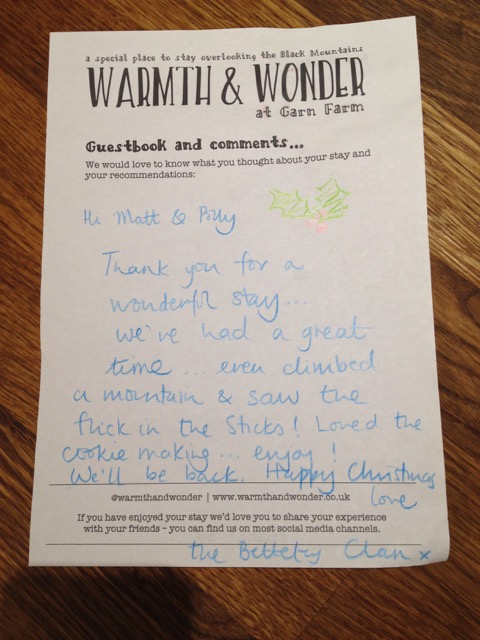 a special place to stay overlooking the Black Mountains
WARMTH & WONDER
at Garn Farm
Guestbook and comments...
We would love to know what you thought about your stay and
your recommendations:
Hi Matt & Polly
Thank you for a
wonderful stay...
we've had a great
time... even climbed
a mountain & saw the
flick in the Sticks! Loved the
cookie making... enjoy!
We'll be back. Happy Christmas
love
@warmthandwonder | www.warmthandwonder.co.uk
If you have enjoyed your stay we'd love you to share your experience
with your friends - you can find us on most social media channels.
the Clan x